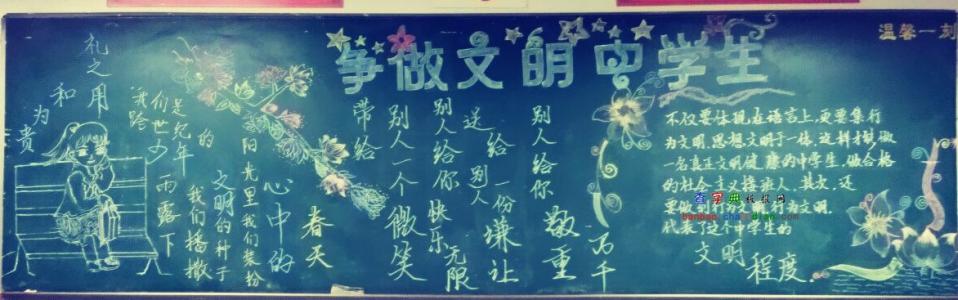 争做文明中学生
温馨一刻
礼之用
和
为贵
我们是
跨世纪
少年
的
雨露下
我们播撒
文明的种子
阳光里我们装纷
心中的
春天
带给
别人一个
微笑
别人给你
快乐无限
送给别人
一份嫌让
别人给你
敬重
万千
不仅要体现在语言上,更要集行
为文明、思想文明于一体,这样才能做
一名真正文明健康的中学生,做合格
的社会主义接班人、其次,还
要做到行为
文明,
代表了这个中学生的
文明
程度.
查字典 板报网
banbao.chazidian.com